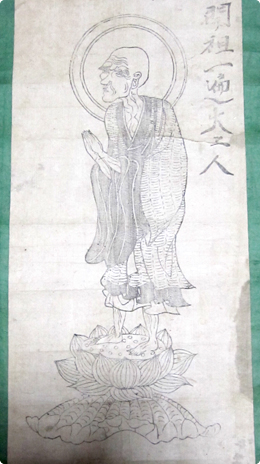 開祖一遍大上人